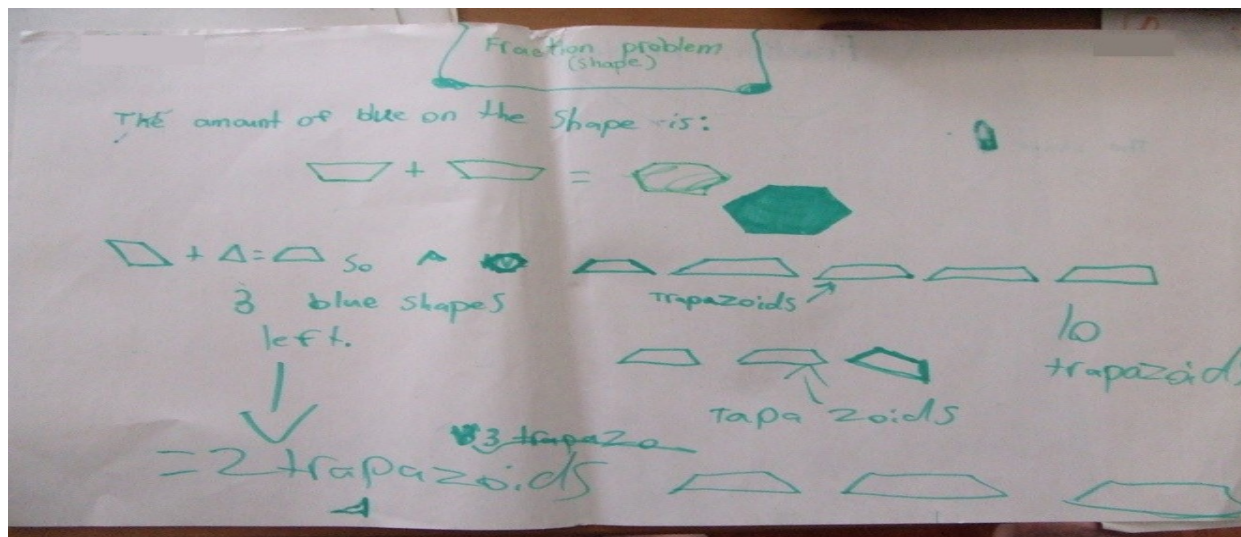 Fraction problem
(shape)
The amount of blue on the shape is:
+ =
+ = so
Trapazoids
3 blue shapes
left.
10
trapazoids
Tapa zoids
3 trapazo
=2 trapazoids